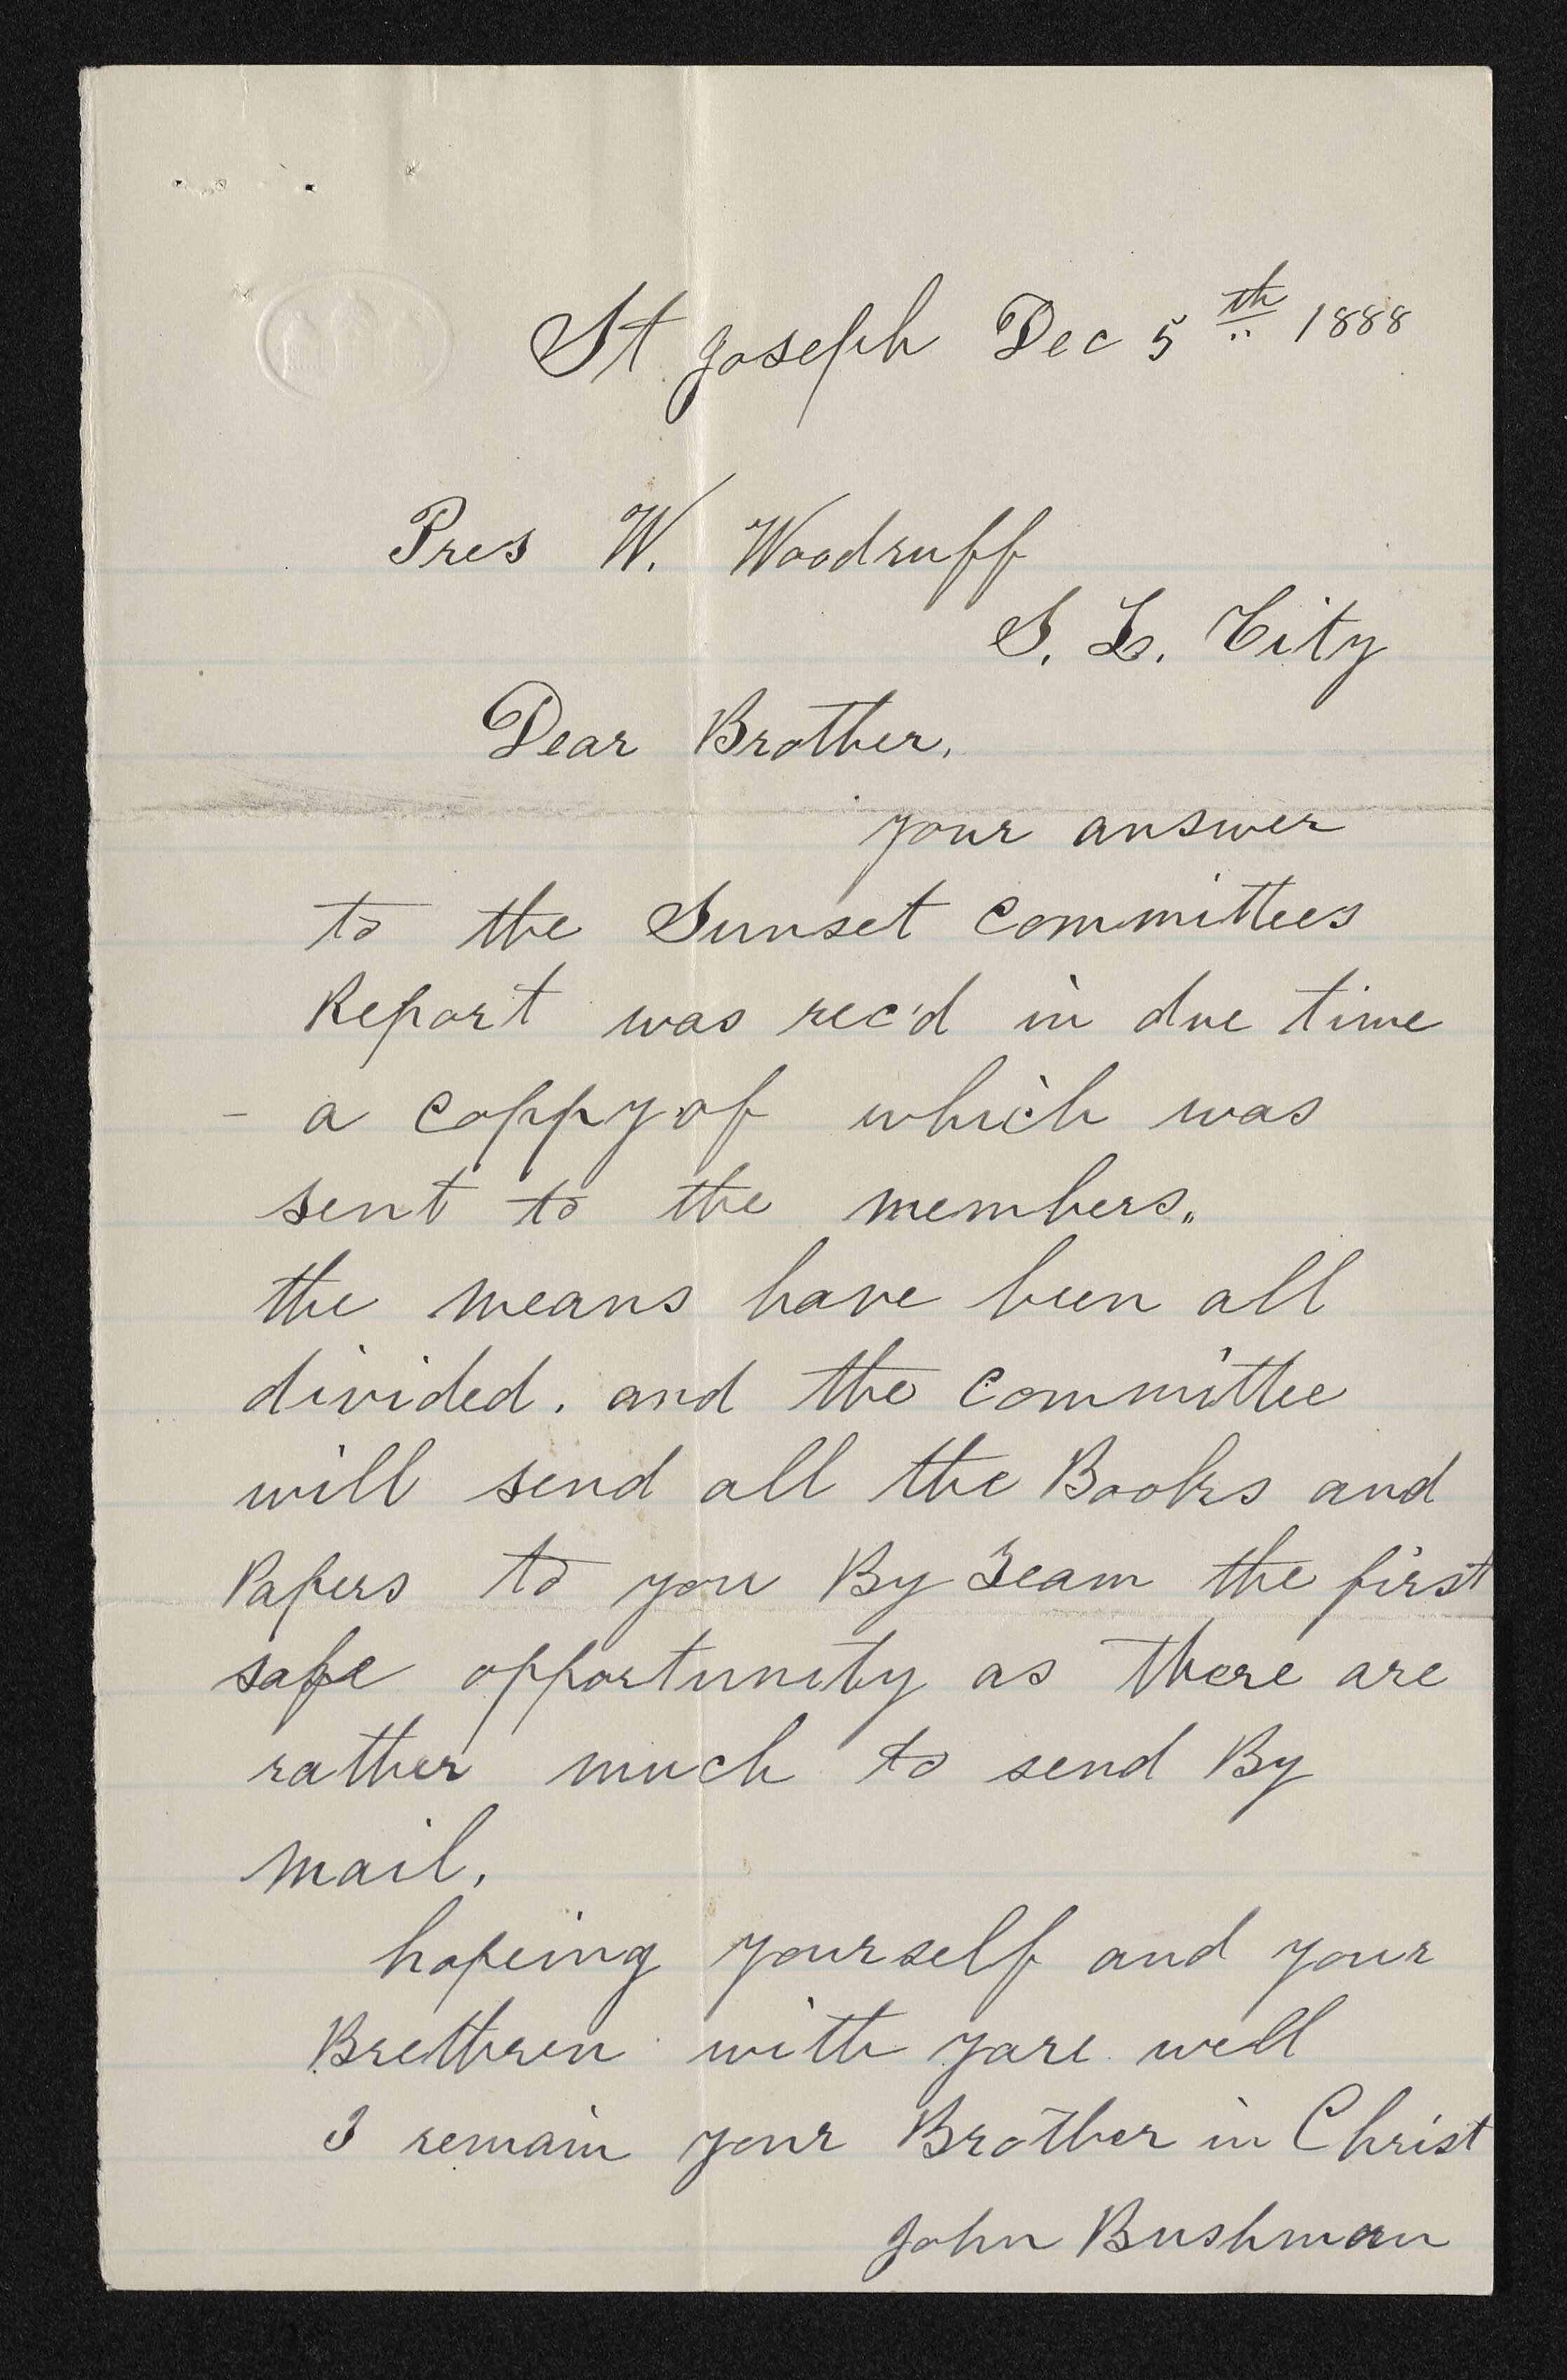 St Joseph Dec 5th 1888
Pres W. Woodruff
S. L. City
Dear Brother,
your answer
to the Sunset Committees
Report was rec'd in due time
- a coppy of which was
sent to the members.
the means have been all
divided. and the Committee
will send all the Books and
Papers to you By Team the first
safe opportunity as there are
rather much to send By
mail.
hopeing yourself and your
Brethren with yare well
I remain your Brother in Christ
John Bushman